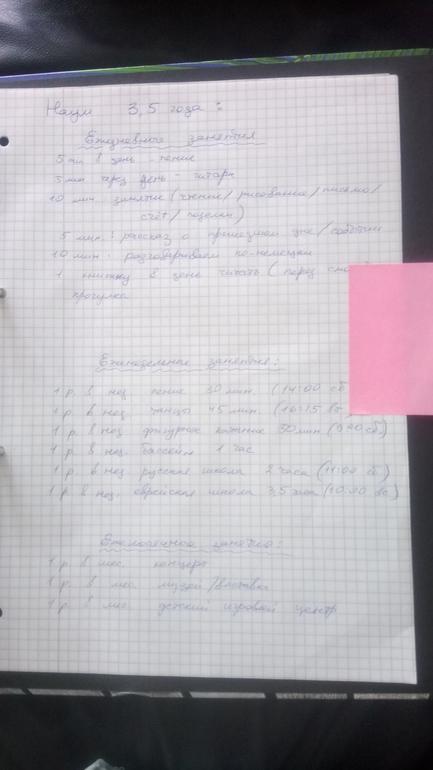 Наум 3,5 года:
Ежедневные занятия
5 мин в день - пение
5 мин через день - гитара
10 мин. занятие (чтение/рисование/письмо/
счёт/поделки)
5 мин.: рассказ о прошедшем дне/событии
10 мин. разговариваем по-немецки
1 книжку в день читать (перед
прогулка
Еженедельные занятия:
1 р. в нед. пение 30 мин. (14:00 сб
1 р. в нед. танцы 45 мин. (16:15 вт
1 р. в нед. фигурное катание 30 мин (9:40 сб)
1 р. в нед. бассейн 1 час
1 р. в нед. русская школа 2 часа (11:00 сб)
1 р. в нед. еврейская школа 3,5 часа (10:00 вс)
Ежемесячные занятия:
1 р. в мес. концерт
1 р. в мес. музей/выставка
1 р. в мес. детский игровой центр